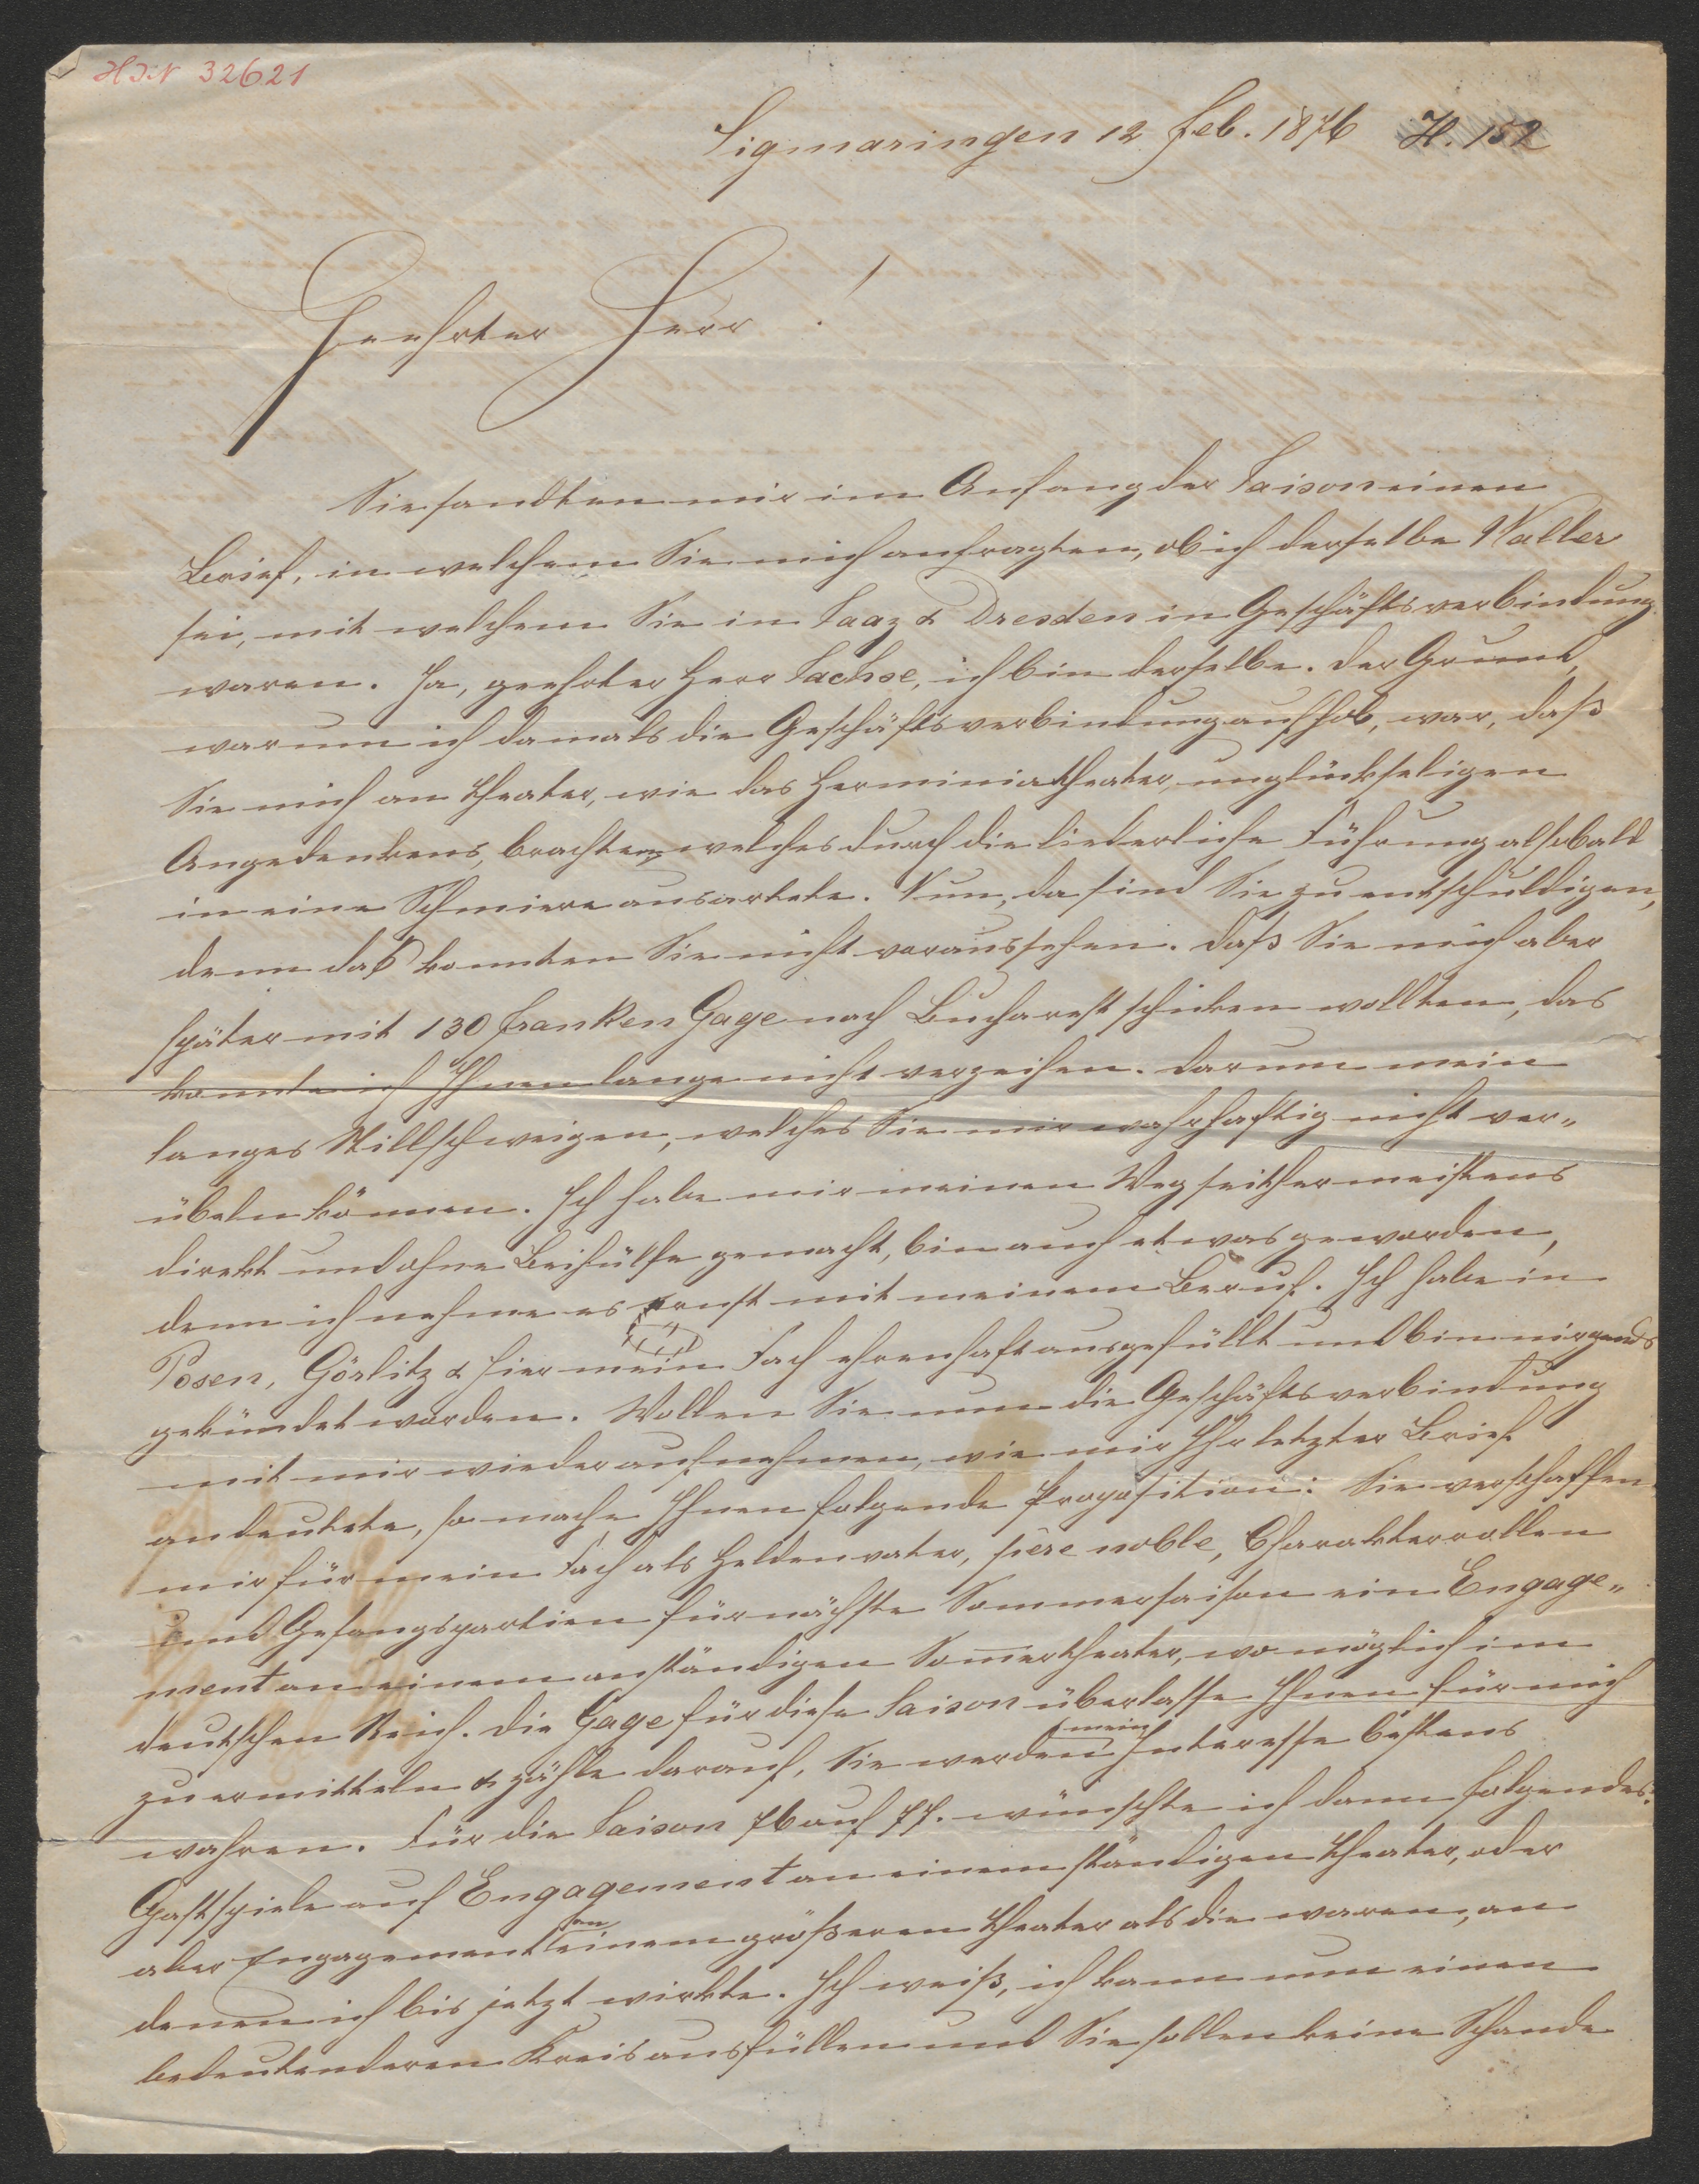 HJN 32621
Sigmaringen 12 Feb. 1876 H. 152
Geehrter Herr!
Sie sandten mir im Anfang der Saison einen
Brief, in welchem Sie mich anfragten, ob ich derselbe Waller
sei, mit welchem Sie in Saaz & Dresden in Geschäftsverbindung
waren. Ja, geehrter Herr Sachse, ich bin derselbe. Der Grund,
warum ich damals die Geschäftsverbindung aufhob, war, daß
Sie mich an Theater, wie das Herminiatheater, unglückseligen
Angedenkens, brachten, welches durch die liederliche Führung alsobald
in eine Schmiere ausartete. Nun, da sind Sie zu entschuldigen,
denn das konnten Sie nicht voraussehen. Daß Sie mich aber
später mit 130 Franken Gage nach Bucharest schicken wollten, das
konnte ich Ihnen lange nicht verzeihen. Darum mein
langes Stillschweigen, welches Sie mir wahrhaftig nicht ver„
übeln können. Ich habe mir meinen Weg seither meistens
direkt und ohne Beihülfe gemacht, bin auch etwas geworden,
denn ich nehme es ernst mit meinem Beruf. Ich habe in
Posen, Görlitz & hier mein Fach ehrenhaft ausgefüllt und bin nirgends
gekündet worden. Wollen Sie nun die Geschäftsverbindung
mit mir wieder aufnehmen, wie mir Ihr letzter Brief
andeutete, so mache Ihnen folgende Proposition: Sie verschaffen
mir für mein Fach als Heldenvater, père noble, Charakterrollen
und Gesangspartien für nächste Sommersaison ein Engage„
ment an einem anständigen Som̅ertheater, wo möglich im
deutschen Reich. Die Gage für diese Saison überlasse Ihnen für mich
zu ermitteln & zähle darauf, Sie werden mein Interesse bestens
wahren. Für die Saison 76 auf 77. wünschte ich dann folgendes:
Gastspiele auf Engagement an einem ständigen Theater, oder
aber Engagement an einem größeren Theater als die waren, an
denen ich bis jetzt wirkte. Ich weiß, ich kann nun einen
bedeutenderen Kreis ausfüllen und Sie sollen keine Schande